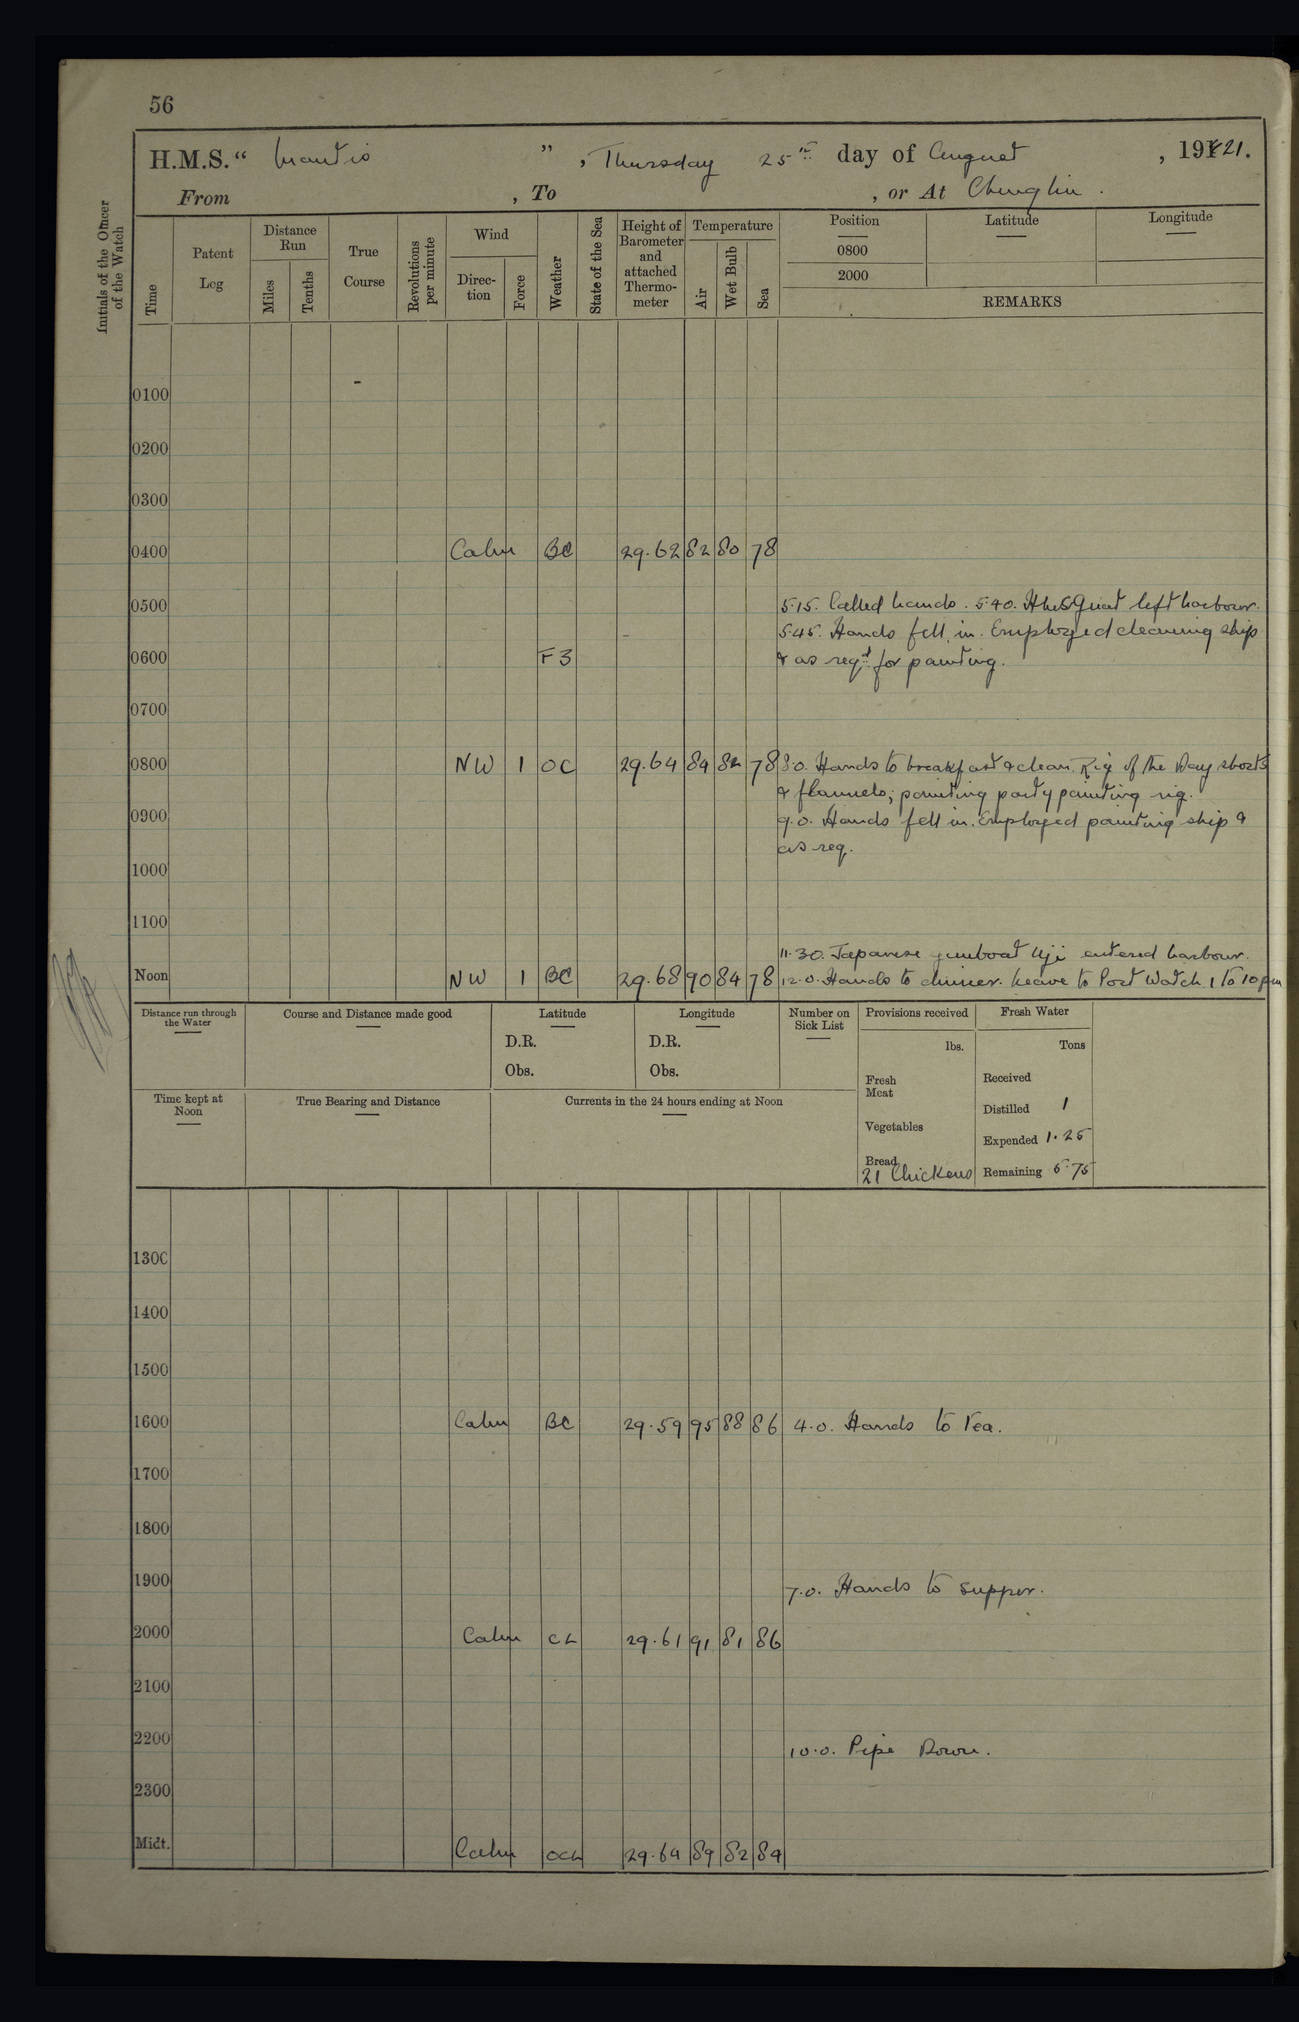 56
H.M.S. "Mantis", Thursday 25th day of August, 1921.
From , To , or At Chenglin.
Initials of the Officer of the Watch
Time
Patent Log
Distance Run
Miles
Tenths
True Course
Revolutions per minute
Wind
Direc-tion
Force
Weather
State of the Sea
Height of Barometer and attached Thermo-meter
Temperature
Air
Wet Bulb
Sea
Position
0800
2000
Latitude
Longitude
REMARKS
0100
0200
0300
0400 Calm BC 29.62 82 80 78
0500 5.15. Called hands. 5.40. HMS Gnat left harbour.
5.45. Hands fell in. Employed cleaning ship
0600 F3 & as reqd for painting.
0700
0800 NW 1 OC 29.64 84 82 78 8.0. Hands to breakfast & clean. Rig of the Day shorts
& flannels; painting party painting rig.
0900 9.0. Hands fell in. Employed painting ship &
as req.
1000
1100
11.30. Japanese gunboat Uji entered harbour.
Noon NW 1 BC 29.68 90 84 78 12.0. Hands to dinner. Leave to Port Watch 1 to 10 pm
Distance run through the Water
Course and Distance made good
Latitude
D.R.
Obs.
Longitude
D.R.
Obs.
Number on Sick List
Provisions received
lbs.
Fresh Meat
Vegetables
Bread
21 Chickens
Fresh Water
Tons
Received
Distilled 1
Expended 1.25
Remaining 5.75
Time kept at Noon
True Bearing and Distance
Currents in the 24 hours ending at Noon
1300
1400
1500
1600 Calm BC 29.59 95 88 86 4.0. Hands to Tea.
1700
1800
1900 7.0. Hands to supper.
2000 Calm CL 29.61 91 81 86
2100
2200 10.0. Pipe Down.
2300
Midt. Calm OCL 29.64 89 82 84